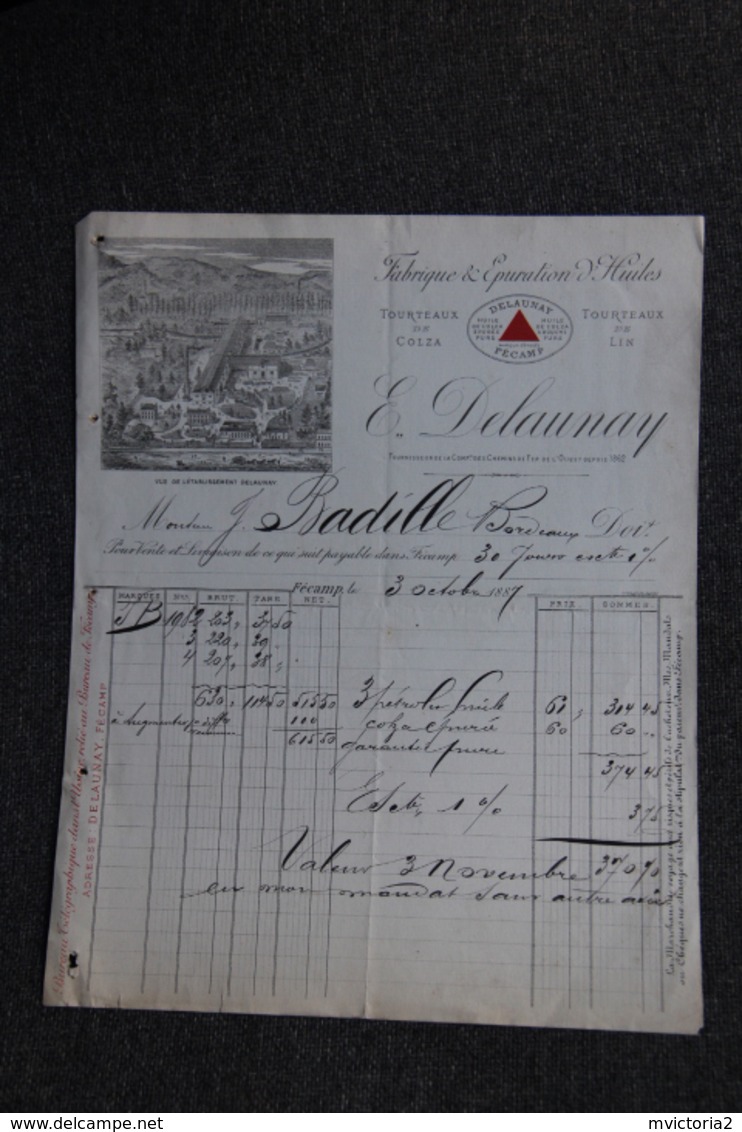 Fabrique & Epuration d'Huiles
TOURTEAUX DE COLZA
DELAUNAY
HUILE DE COLZA EPURÉE PURE
HUILE DE COLZA EPURÉE PURE
FÉCAMP
TOURTEAUX DE LIN
E. Delaunay
FOURNISSEUR DE LA COMP.IE DES CHEMINS DE FER DE L'OUEST DEPUIS 1862
VUE DE L'ÉTABLISSEMENT DELAUNAY.
Monsieur J. Badille Bordeaux Doit
Pour Vente et Livraison de ce qui suit payable dans Fécamp 30 Jours escte 1%
Fécamp, le 3 octobre 1887
MARQUES Nos BRUT. TARE NET. PRIX. SOMMES.
JB 1982 203, 3750
3 220, 39,
4 207, 38,
630, 11450 51550 3 61, 314 45
à augmenter 100 colza épuré 60 60 ,,
61550 garantie pure
374 45
Escte 1 %
3 75
Valeur 3 Novembre 370 70
en mon mandat sans autre avis
Bureau Télégraphique dans l'Usine relié au Bureau de Fécamp
ADRESSE: DELAUNAY, FÉCAMP
La Marchandise voyage aux risques et périls de l'acheteur. Mes Mandats
ou Chèques ne changent rien à la stipulat.on du paiem.t dans Fécamp.
www.delcampe.net
mvictoria2